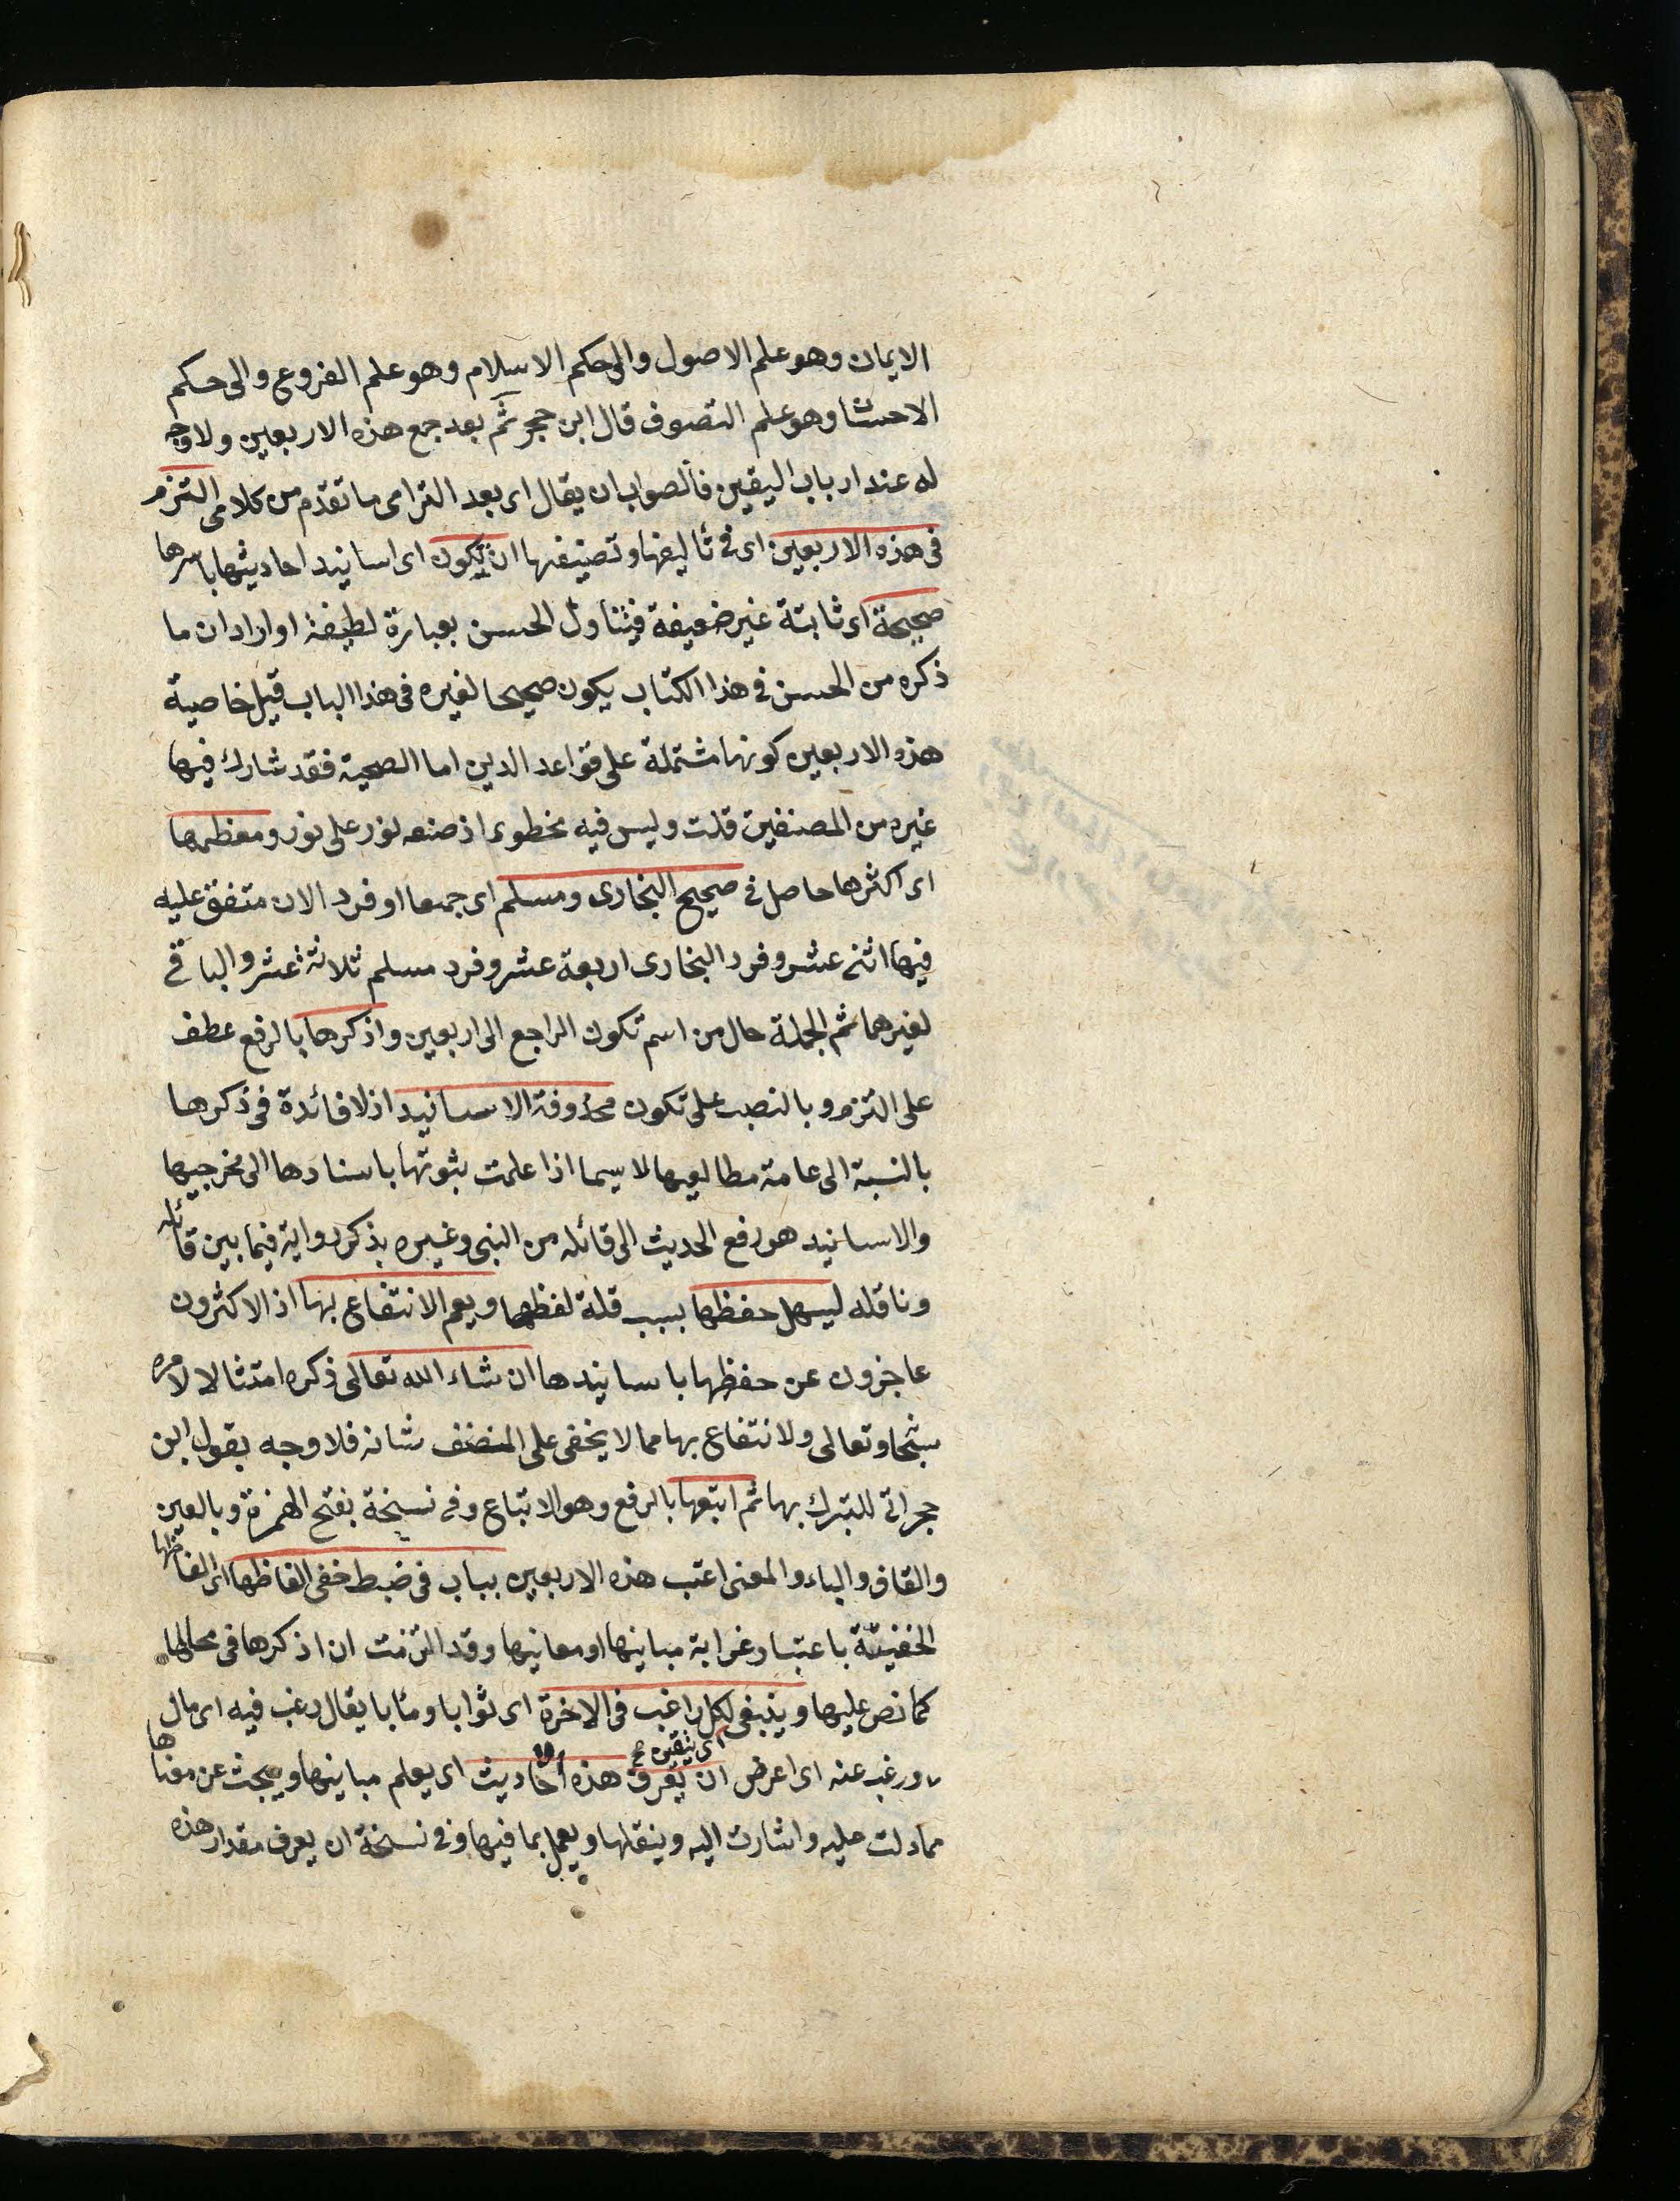 الايمان وهو علم الاصول والى حكم الاسلام وهو علم الفروع والى حكم
الاحسان وهو علم التصوف قال ابن حجر ثم بعد جمع هذه الاربعين ولا وجه
له عند ارباب اليقين فالصواب ان يقال اى بعد التزامى ما تقدم من كلامى التزم
فى هذه الاربعين اى فى تأليفها وتصنيفها ان تكون اى اسانيد احاديثها باسرها
صحيحة اى ثابتة غير ضعيفة فيتناول الحسن بعبارة لطيفة او اراد ان ما
ذكره من الحسن فى هذا الكتاب يكون صحيحا لغيره فى هذا الباب قيل خاصية
هذه الاربعين كونها مشتملة على قواعد الدين اما الصحية فقد شارك فيها
غيره من المصنفين قلت وليس فيه محظور اذ صنعه نور على نور ومعظمها
اى اكثرها حاصل فى صحيح البخارى ومسلم اى جمعا او فرد الان متفق عليه
فيها اثنى عشر وفرد البخارى اربعة عشر وفرد مسلم ثلاثة عشر والباقى
لغيرهما ثم الجملة حال من اسم تكون الراجع الى اربعين واذكرها بالرفع عطف
على التزم وبالنصب على تكون محذوفة الاسانيد اذ لا فائدة فى ذكرها
بالنسبة الى عامة مطالعيها لا سيما اذا علمت ثبوتها باسنادها الى مخرجيها
والاسانيد هو رفع الحديث الى قائله من النبى وغيره بذكر رواية فيما بين قائله
وناقله ليسهل حفظها بسبب قلة لفظها ويعم الانتفاع بها اذ الاكثرون
عاجزون عن حفظها باسانيدها ان شاء الله تعالى ذكره امتثالا لامره
سبحا وتعالى ولانتفاع بها مما لا يخفى على المنصف شانه فلا وجه بقول ابن
حجر اتى للتبرك بها ثم اتبعها بالرفع وهو الاتباع وفى نسخة بفتح الهمزة وبالعين
والقاف والباء والمعنى اعقب هذه الاربعين بباب فى ضبط خفى الفاظها اى الفاظها
الخفيّة باعتبار غرابة مبانيها او معانيها وقد التزمت ان اذكرها فى محالها
كما نص عليها وينبغى لكل راغب فى الاخرة اى ثوابا ومآبا يقال رغب فيه اى مال
ورغب عنه اى اعرض ان يعرف هذه الاحاديث اى يعلم مبانيها ويبحث عن معناها
مما دلت عليه واشارت اليه وينقلها ويعمل بما فيها وفى نسخة ان يعرف مقدار هذه